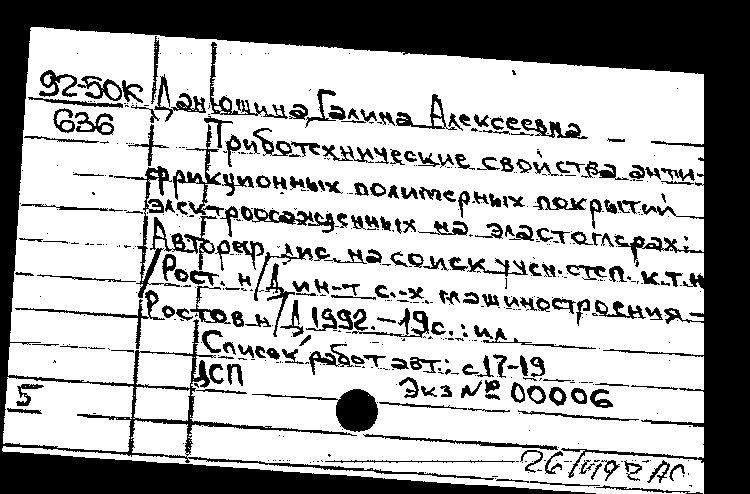 92-50К
636
Данюшина, Галина Алексеевна
Триботехнические свойства анти-
фрикционных полимерных покрытий
электроосажденных на эластомерах:
Автореф. дис. на соиск учен. степ. к.т.н
/Рост. н/Д ин-т с.-х. машиностроения. –
Ростов н/Д 1992. – 19с.: ил.
Список работ авт.: с 17-19
ДСП
Экз № 00006
5
26/VII 92 АС